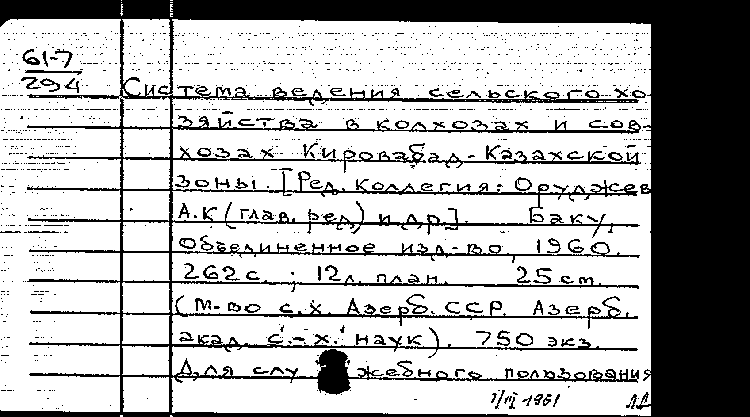 61-7
294
Система ведения сельского хо-
зяйства в колхозах и сов-
хозах Кировабад-Казахской
зоны. [Ред. коллегия: Оруджев
А.К (глав. ред) и др.]. Баку,
Объединенное изд-во, 1960.
262 с. ; 12 л. план. 25 см.
(М-во с.х. Азерб. ССР. Азерб.
акад. с.-х. наук). 750 экз.
Для служебного пользования
1961